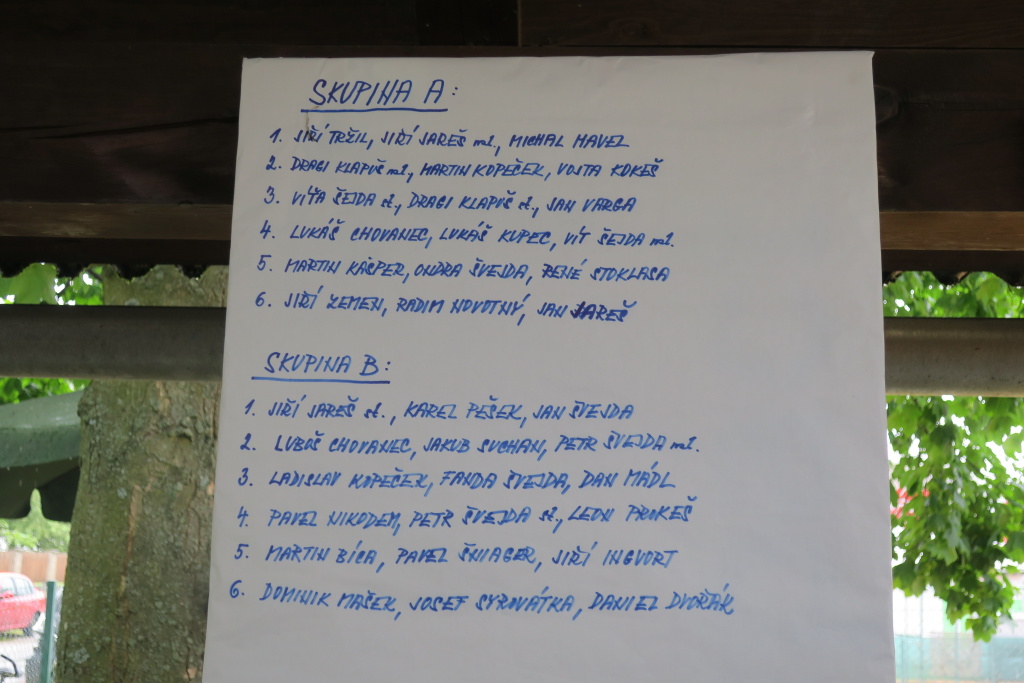 SKUPINA A:
1. JIŘÍ TRŽIL, JIŘÍ JAREŠ ml., MICHAL HAVEL
2. DRAGI KLAPUŠ ml., MARTIN KOPEČEK, VOJTA KOKEŠ
3. VÍŤA ŠEJDA st., DRAGI KLAPUŠ st., JAN VARGA
4. LUKÁŠ CHOVANEC, LUKÁŠ KUPEC, VÍT ŠEJDA ml.
5. MARTIN KÁSPER, ONDRA ŠVEJDA, RENÉ STOKLASA
6. JIŘÍ ZEMEN, RADIM NOVOTNÝ, JAN JAREŠ
SKUPINA B:
1. JIŘÍ JAREŠ st., KAREL PEŠEK, JAN ŠVEJDA
2. LUBOŠ CHOVANEC, JAKUB SUCHAN, PETR ŠVEJDA ml.
3. LADISLAV KOPEČEK, FANDA ŠVEJDA, DAN MÁDL
4. PAVEL NIKODEM, PETR ŠVEJDA st., LEON PROKEŠ
5. MARTIN BÍCA, PAVEL ŠNIAGER, JIŘÍ INGVORT
6. DOMINIK MAŠEK, JOSEF SYROVÁTKA, DANIEL DVOŘÁK